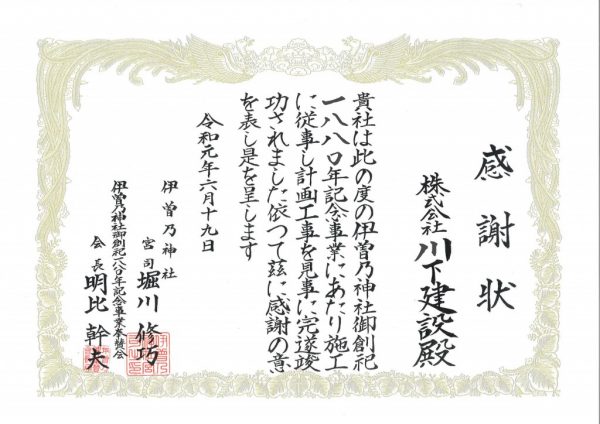 感謝状
株式会社 川下建設殿
貴社は此の度の伊曽乃神社御創祀
一八八〇年記念事業にあたり施工
に従事し計画工事を見事に完遂竣
功されました依つて茲に感謝の意
を表し是を呈します
令和元年六月十九日
伊曽乃神社
宮司 堀川修巧
伊曽乃神社御創祀一八八〇年記念事業奉賛会
会長 明比幹夫